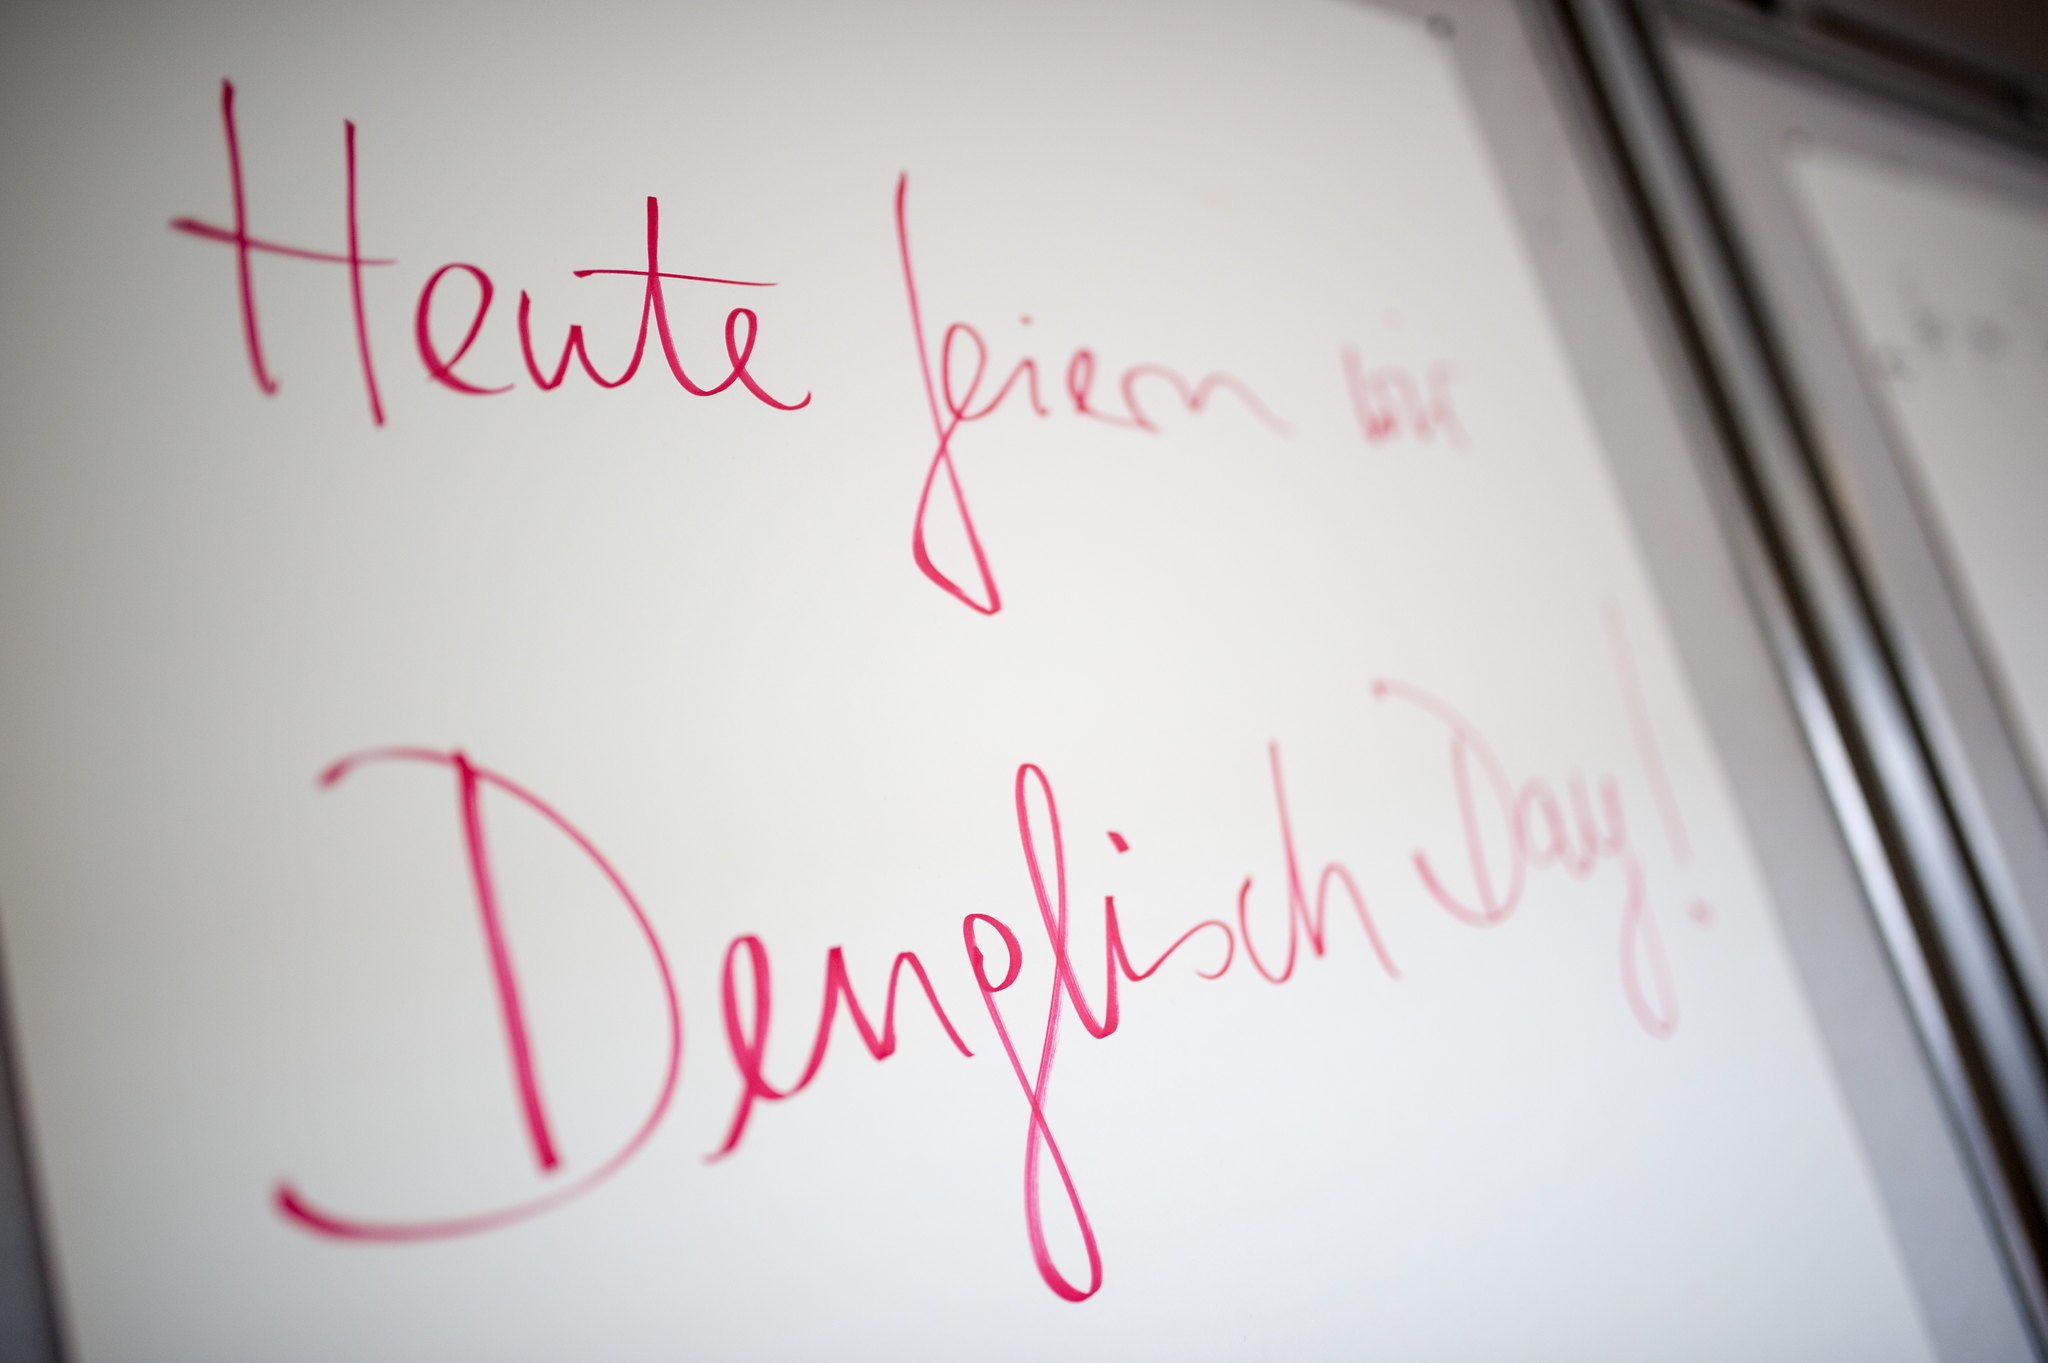 Heute feiern wir
Denglisch Day!